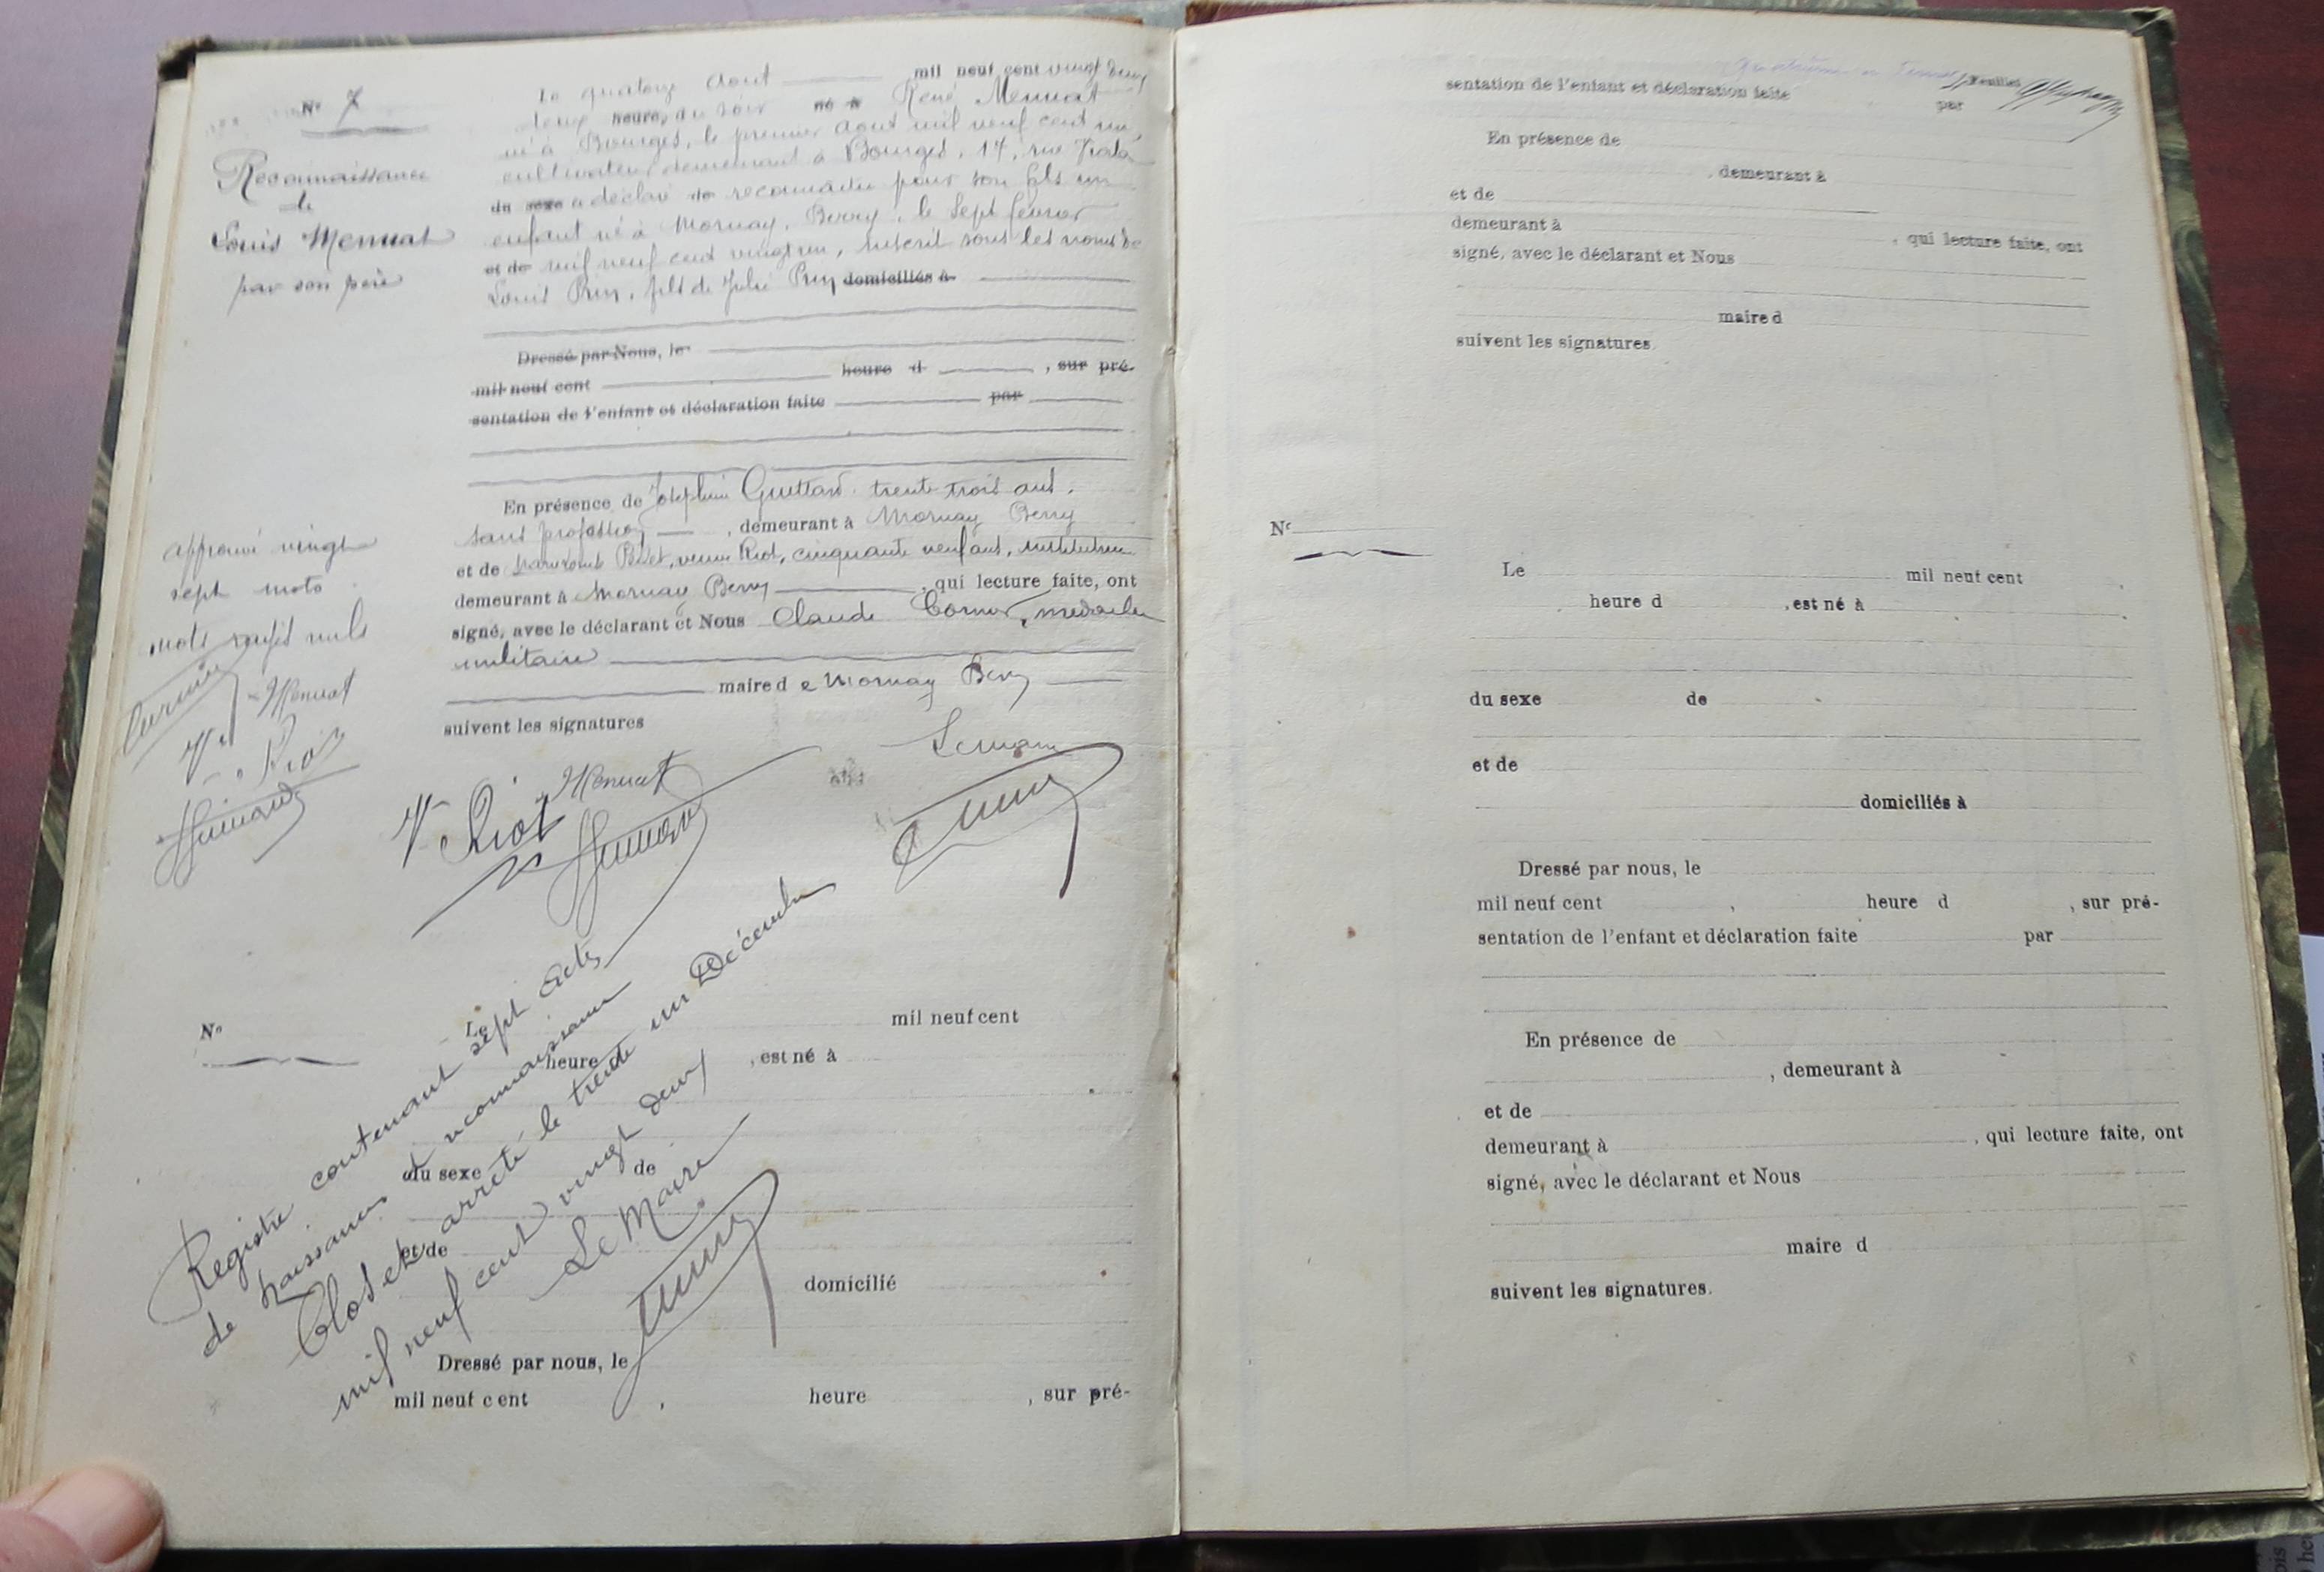 N° 7
Reconnaissance
de
Louis Mennat
par son père
Le quatorze Aout mil neuf cent vingt deux
heure, du soir né à René Mennat
né à Bourges, le premier Aout mil neuf cent un,
cultivateur demeurant à Bourges, 17, rue
du sexe a déclaré de reconnaitre pour son fils un
enfant né à Mornay Berry, le sept février
et de mil neuf cent vingt un, inscrit sous les noms de
Louis Prin, fils de Julie Prin domiciliés à
Dressé par Nous, le
mil neuf cent heure d , sur pré-
sentation de l'enfant et déclaration faite par
En présence de Joséphine trente trois ans,
sans profession , demeurant à Mornay Berry
et de veuve Riot, cinquante neuf ans, institutrice
demeurant à Mornay Berry , qui lecture faite, ont
signé, avec le déclarant et Nous Claude médaillé
militaire
maire d e Mornay Berry
suivent les signatures
approuvé vingt
sept mots
mots rayés nuls
Mennat
Vve Riot
Le maire
Vve Riot Mennat
N°
Le mil neuf cent
heure , est né à
du sexe de
et de
domicilié
Dressé par nous, le
mil neuf cent , heure , sur pré-
Registre contenant sept actes
de naissances et reconnaissance
Clos et arrêté le trente un Décembre
mil neuf cent vingt deux
Le Maire
Feuillet
sentation de l'enfant et déclaration faite par
En présence de
, demeurant à
et de
demeurant à , qui lecture faite, ont
signé, avec le déclarant et Nous
maire d
suivent les signatures
N°
Le mil neuf cent
heure d , est né à
du sexe de
et de
domiciliés à
Dressé par nous, le
mil neuf cent , heure d , sur pré-
sentation de l'enfant et déclaration faite par
En présence de
, demeurant à
et de
demeurant à , qui lecture faite, ont
signé, avec le déclarant et Nous
maire d
suivent les signatures.